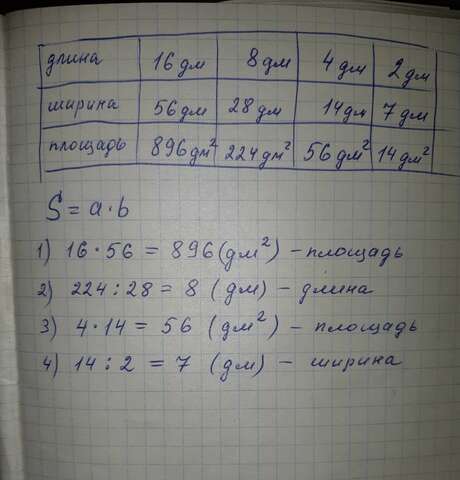 длина 16 дм 8 дм 4 дм 2 дм
ширина 56 дм 28 дм 14 дм 7 дм
площадь 896 дм² 224 дм² 56 дм² 14 дм²
S = a·b
1) 16·56 = 896 (дм²) – площадь
2) 224:28 = 8 (дм) – длина
3) 4·14 = 56 (дм²) – площадь
4) 14:2 = 7 (дм) – ширина